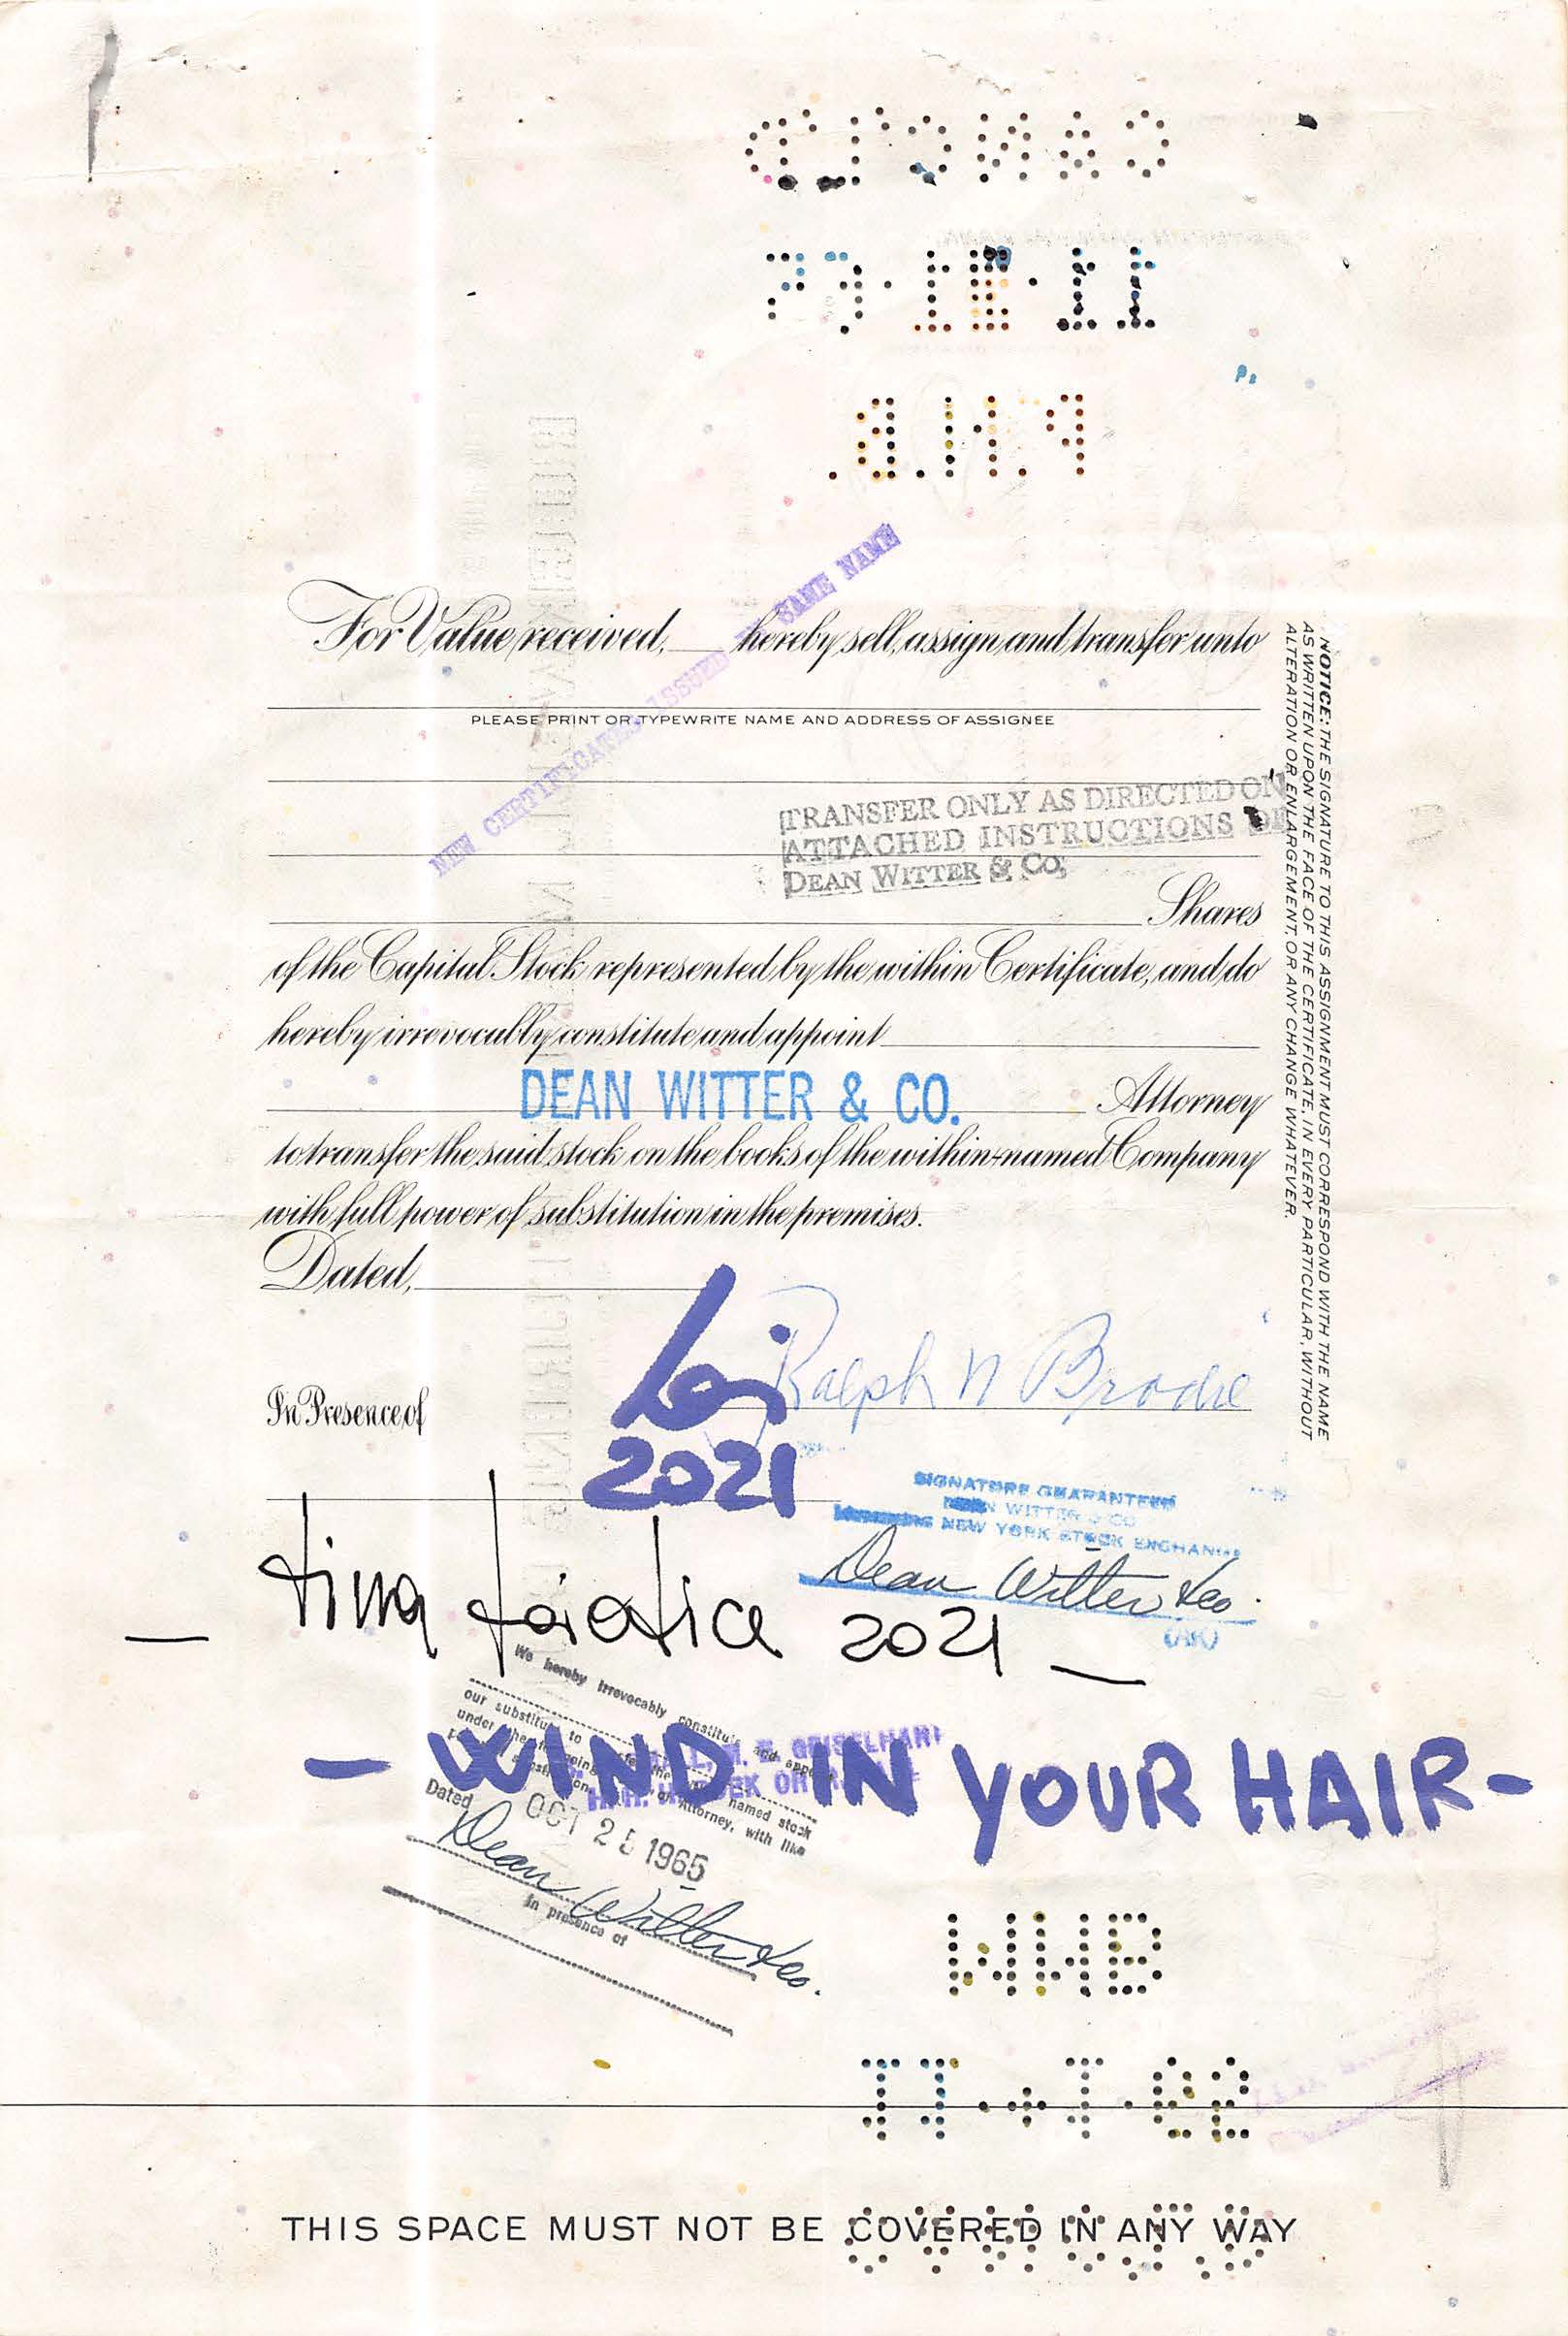 NEW CERTIFICATES ISSUED IN SAME NAME
For Value received, hereby sell, assign and transfer unto
PLEASE PRINT OR TYPEWRITE NAME AND ADDRESS OF ASSIGNEE
TRANSFER ONLY AS DIRECTED ON
ATTACHED INSTRUCTIONS OF
DEAN WITTER & CO.
Shares
of the Capital Stock represented by the within Certificate, and do
hereby irrevocably constitute and appoint
DEAN WITTER & CO.
Attorney
to transfer the said stock on the books of the within-named Company
with full power of substitution in the premises.
Dated,
NOTICE: THE SIGNATURE TO THIS ASSIGNMENT MUST CORRESPOND WITH THE NAME
AS WRITTEN UPON THE FACE OF THE CERTIFICATE, IN EVERY PARTICULAR, WITHOUT
ALTERATION OR ENLARGEMENT, OR ANY CHANGE WHATEVER.
Ralph N Brodie
In Presence of
2021
SIGNATURE GUARANTEED
DEAN WITTER & CO
NEW YORK STOCK EXCHANGE
Dean Witter & Co.
2021
We hereby irrevocably constitute and appoint
our substitute to
named stock
under the foregoing
Attorney, with like
Dated
OCT 25 1965
Dean Witter & Co.
In presence of
- WIND IN YOUR HAIR -
THIS SPACE MUST NOT BE COVERED IN ANY WAY